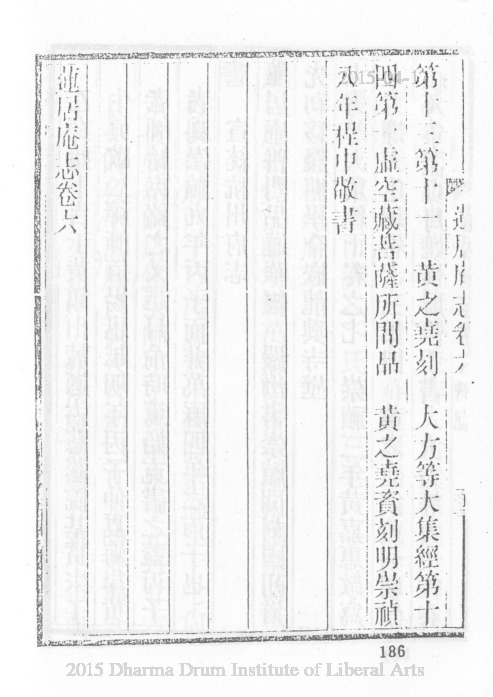 蓮居庵志卷六
第十三第十一 黄之堯刻 大方等大集經第十
四第一虚空藏菩薩所問品 黄之堯資刻明崇禎
八年程中敬書
蓮居庵志卷六
186
2015 Dharma Drum Institute of Liberal Arts